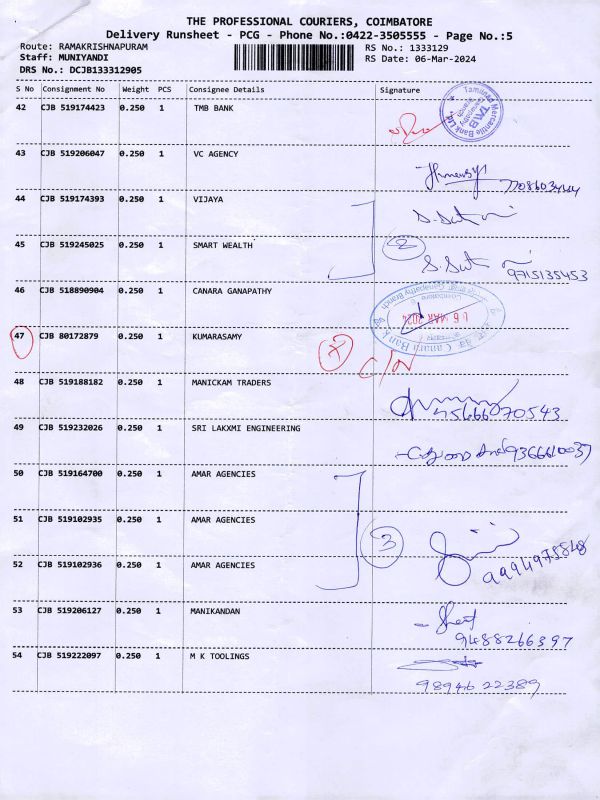 THE PROFESSIONAL COURIERS, COIMBATORE
Delivery Runsheet - PCG - Phone No.:0422-3505555 - Page No.:5
Route: RAMAKRISHNAPURAM
RS No.: 1333129
Staff: MUNIYANDI
RS Date: 06-Mar-2024
DRS No.: DCJB133312905
S No Consignment No Weight PCS Consignee Details Signature
42 CJB 519174423 0.250 1 TMB BANK
Tamilnad Mercantile Bank Ltd
TMB
43 CJB 519206047 0.250 1 VC AGENCY
44 CJB 519174393 0.250 1 VIJAYA
45 CJB 519245025 0.250 1 SMART WEALTH
2
9715135453
46 CJB 518890904 0.250 1 CANARA GANAPATHY
Canara Bank
Ganapathy Branch
Coimbatore
06 MAR 2024
47 CJB 80172879 0.250 1 KUMARASAMY
C/N
48 CJB 519188182 0.250 1 MANICKAM TRADERS
9566670543
49 CJB 519232026 0.250 1 SRI LAKXMI ENGINEERING
50 CJB 519164700 0.250 1 AMAR AGENCIES
51 CJB 519102935 0.250 1 AMAR AGENCIES
3
52 CJB 519102936 0.250 1 AMAR AGENCIES
53 CJB 519206127 0.250 1 MANIKANDAN
9488266397
54 CJB 519222097 0.250 1 M K TOOLINGS
9894622389